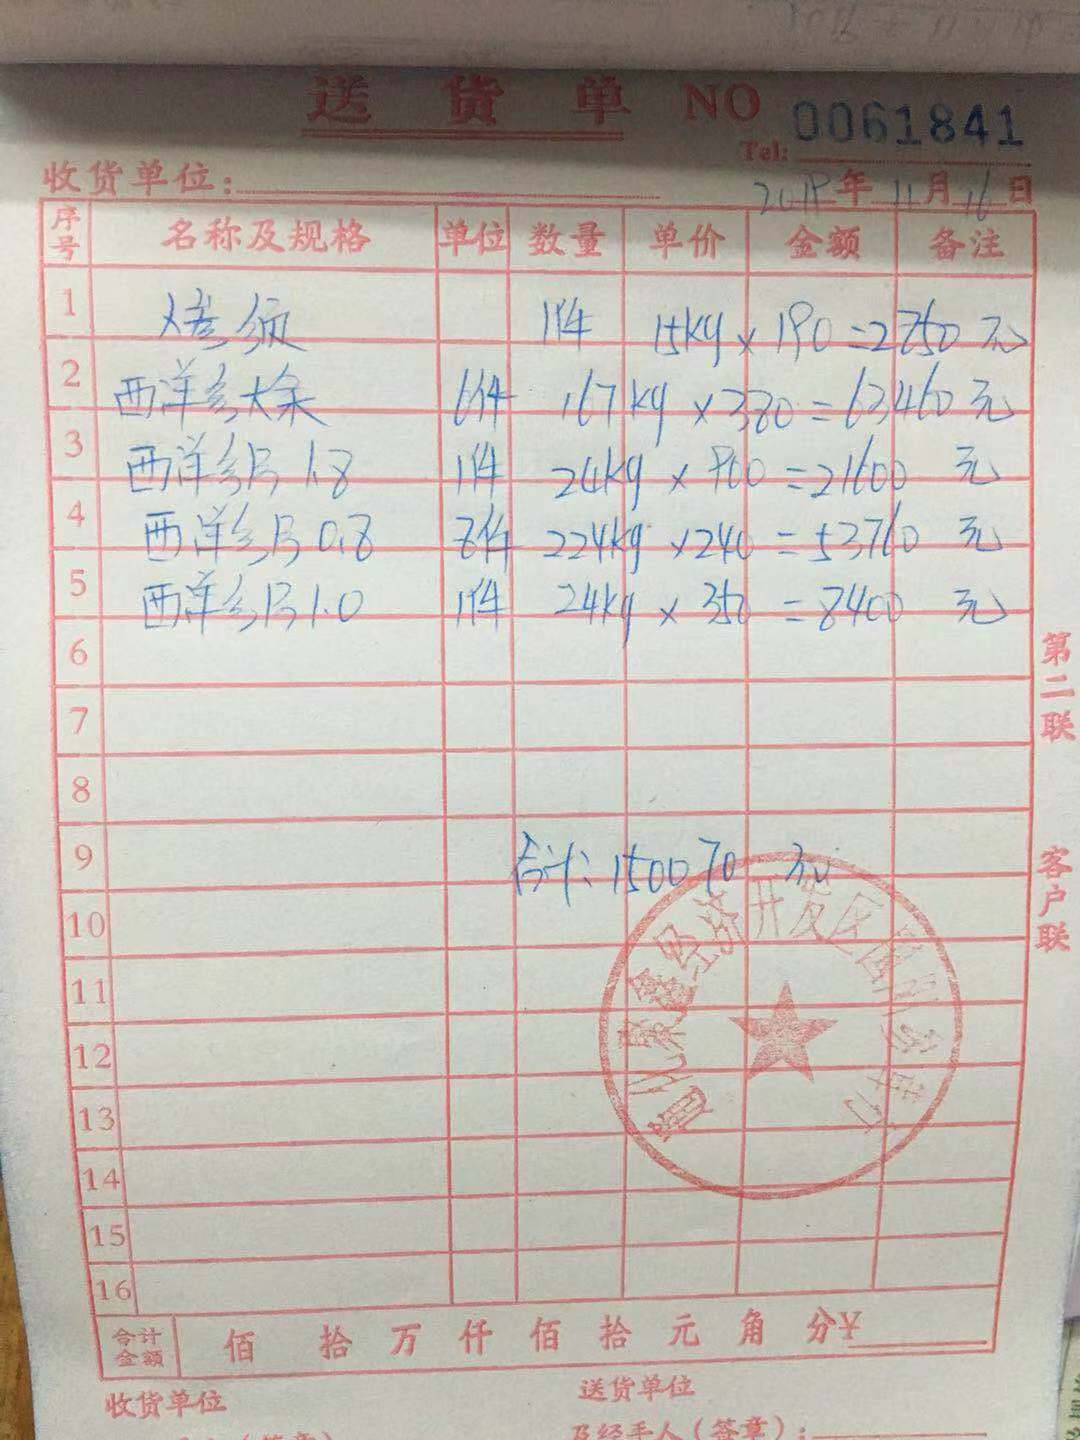 送货单 NO 0061841
Tel:
收货单位: 2019年11月16日
序号 名称及规格 单位 数量 单价 金额 备注
1 须 1件 15kg × 190 = 2850 元
2 西洋参大条 6件 167kg × 380 = 63460 元
3 西洋参段1.8 1件 24kg × 900 = 21600 元
4 西洋参段0.8 8件 224kg × 240 = 53760 元
5 西洋参段1.0 1件 24kg × 350 = 8400 元
6
7
8
9 合计: 150070 元
10
11
12
13
14
15
16
合计金额 佰 拾 万 仟 佰 拾 元 角 分¥
收货单位 送货单位
及经手人(签章):
第二联
客户联
经济开发区